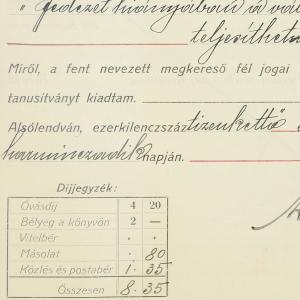 " fedezet hiányában a vá
teljesíthet
Miről, a fent nevezett megkereső fél jogai
tanusítványt kiadtam.
Alsólendván, ezerkilencszáztizenkettő
harminczadik napján.
Díjjegyzék:
Óvásdíj 4 20
Bélyeg a könyvön 2 —
Vitelbér . .
Másolat . 80
Közlés és postabér 1 35
Összesen 8 35